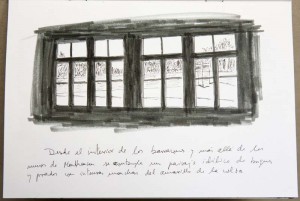 Desde el interior de los barracones y mas alla de los
muros de Mauthausen se contempla un paisaje idilico de bosques
y prados con intensas manchas del amarillo de la colza